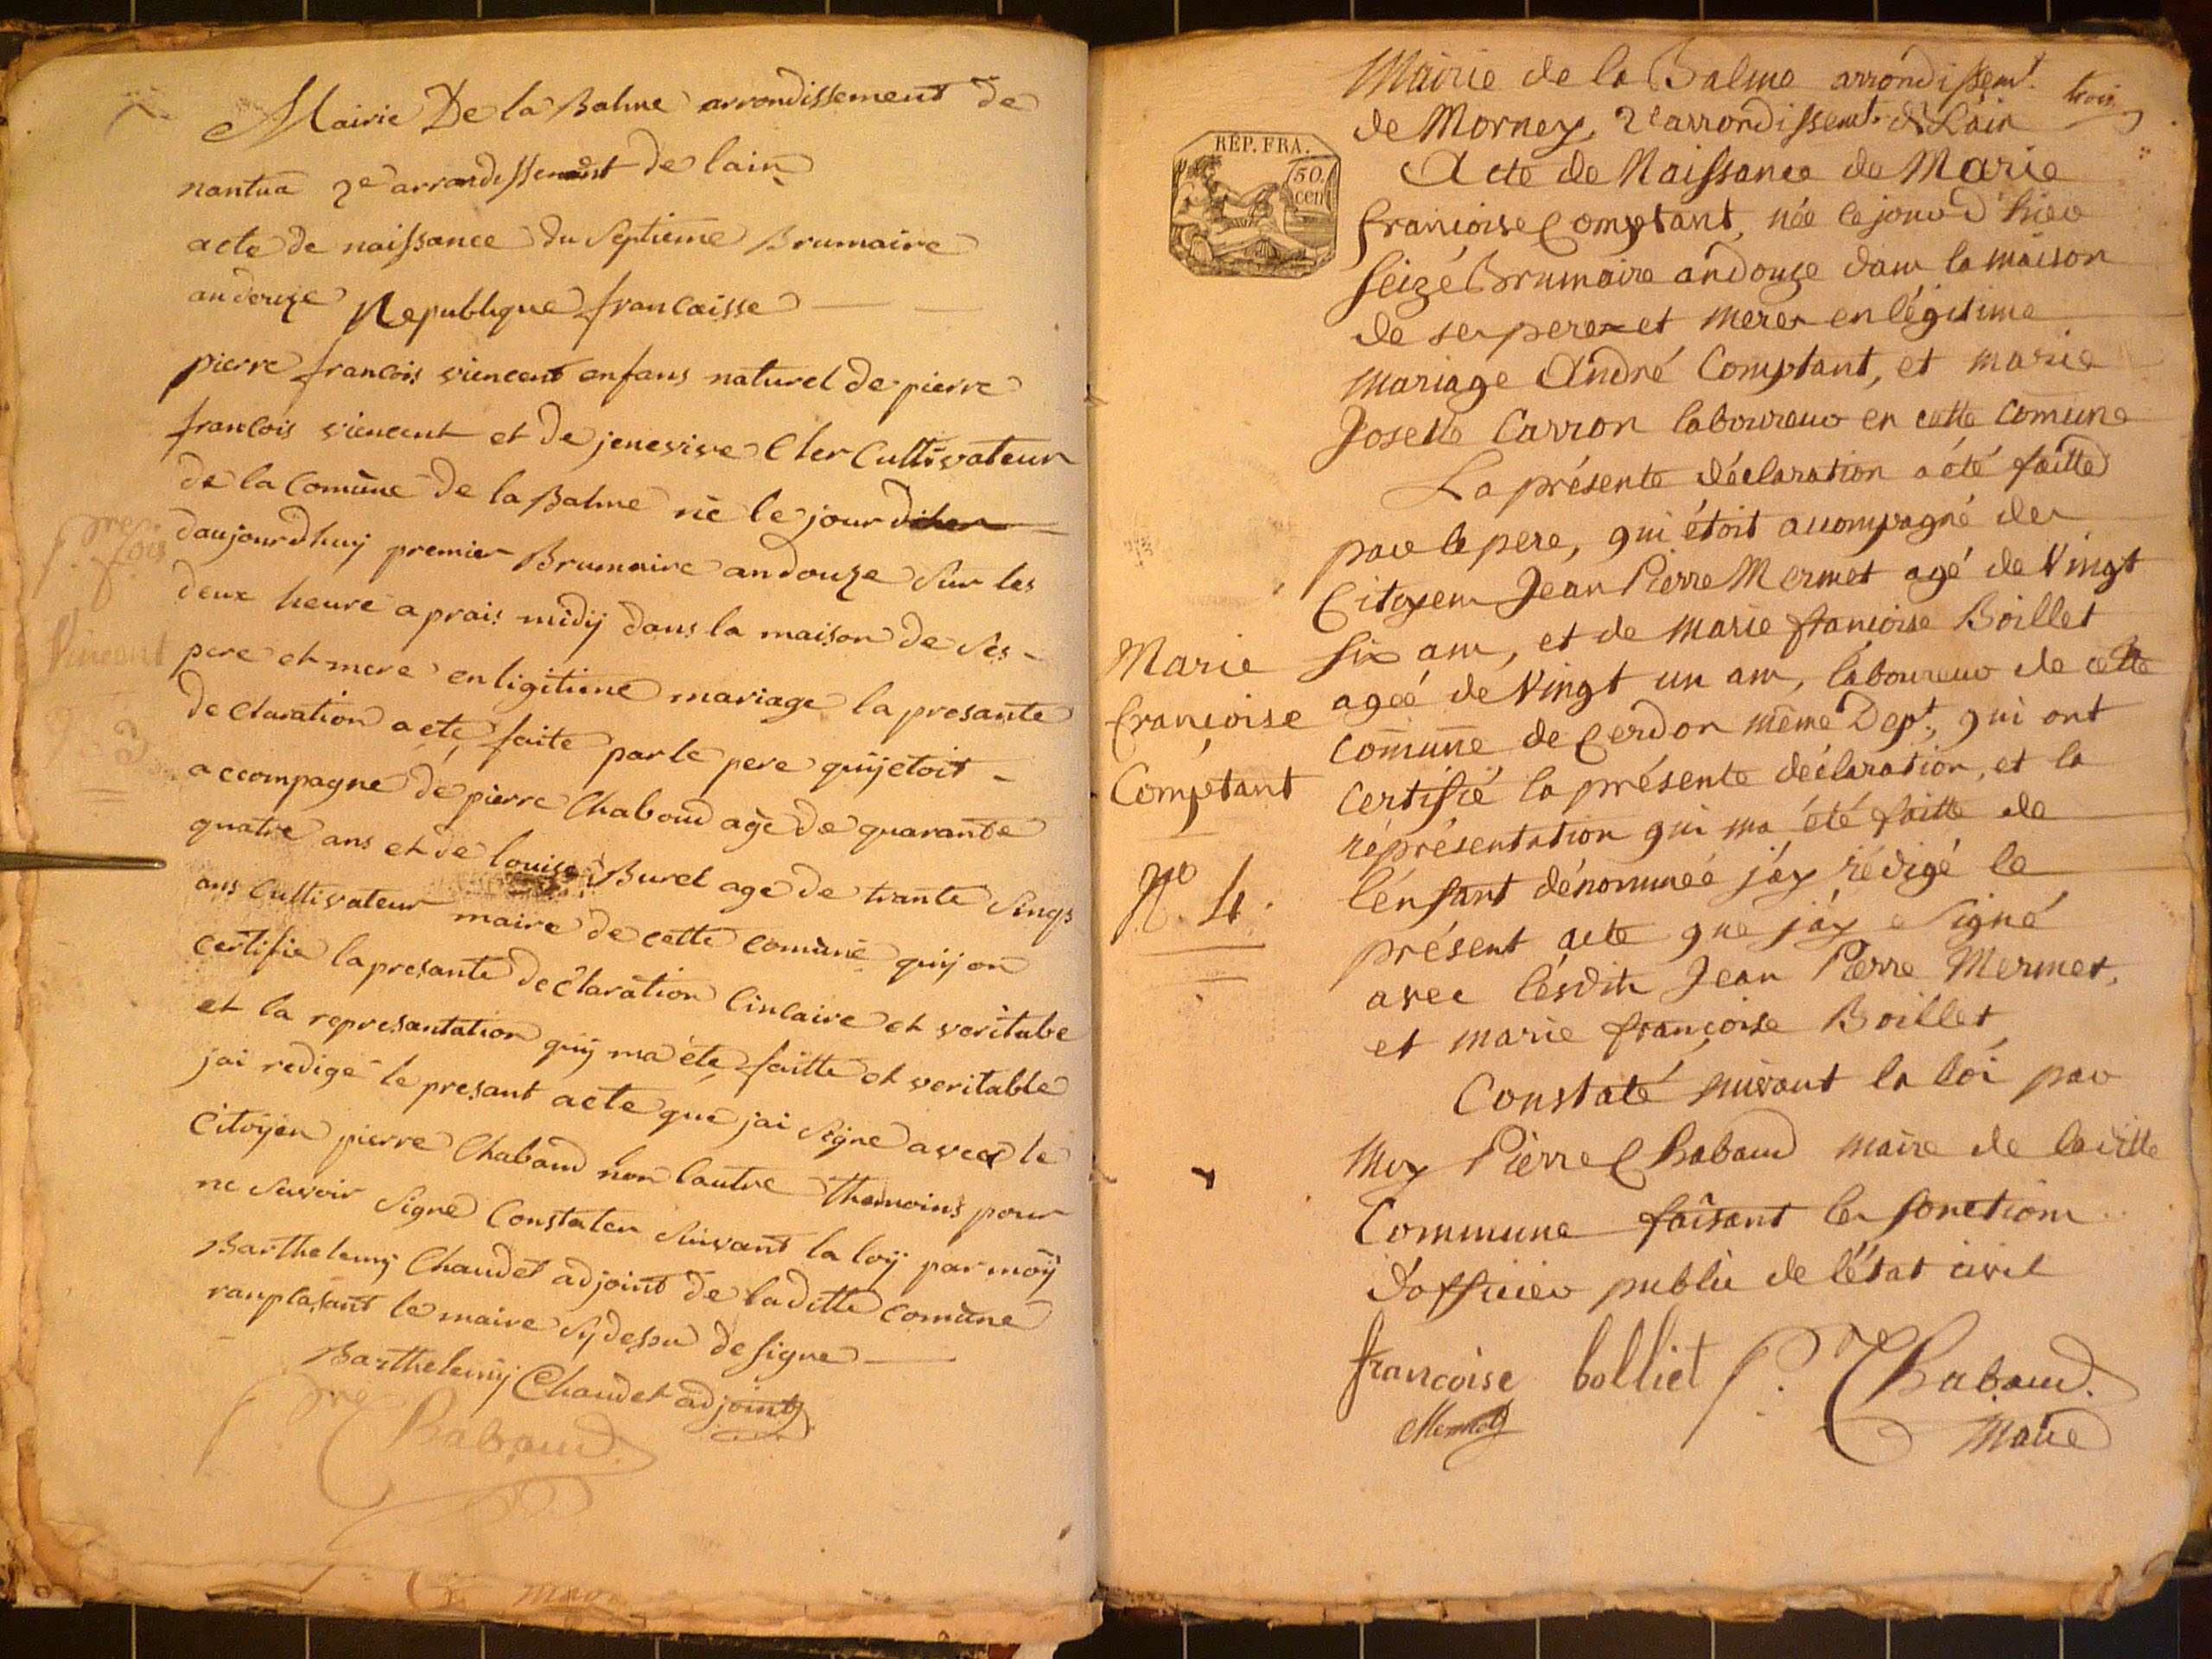 Mairie De la Balme arrondissement de
nantua 2e arrondissement de lain
acte de naissance du septieme Brumaire
an douze Republique francaisse
pierre francois viencent enfans naturel de pierre
francois viencent et de jenevive Cler Cultivateur
de la Comune de la Balme né le jour dhier
daujourdhuy premier Brumaire an douze sur les
deux heure aprais midy dans la maison de ses
pere et mere en ligitime mariage la presante
declaration a ete faite par le pere quy etoit
accompagne de pierre Chaboud agé de quarante
quatre ans et de louise Burel age de trante sinqs
ans Cultivateur maire de cette comune quy on
certifie la presante declaration sinlaire et voritabe
et la represantation quy ma été faitte et veritable
jai redigé le presant acte que jai signe avec le
Citoyen pierre Chaboud non lautre themoins pour
ne savoir signe Constater suivant la loy par moy
Barthelemy Chaudet adjoint de laditte comune
ranplasant le maire sy dessu designe
Barthelemy Chaudet adjoint
pre
fois
Vincent
3
P. Chabaud
Mairie de la Balme arrondissemt.
de Mornay, 2e arrondissemt. de Lain
trois
REP. FRA.
50
cen
Acte de Naissance de Marie
françoise Comptant, née le jour d'hier
seize Brumaire an douze dans la maison
de ses peres et meres en légitime
mariage André Comptant, et marie
Josette Carron laboureur en cette comune
La présente déclaration a été faitte
par le pere, qui étoit accompagné des
Citoyens Jean Pierre Mermet agé de Vingt
six ans, et de marie françoise Boillet
ageé de Vingt un ans, laboureur de cette
comune, de Cerdon même Dept., qui ont
certifié la présente déclaration, et la
réprésentation qui ma été faitte de
l'enfant dénommeé j'ay rédigé le
présent acte que j'ay signé
avec lesdits Jean Pierre Mermet,
et marie françoise Boillet
Constaté suivant la loi par
Moy Pierre Chabaud maire de laditte
Commune faisant les fonctions
d'officier public de l'état civil
Marie
françoise
Comptant
No. 4.
francoise bolliet P. Chabaud.
Mermet
Maire